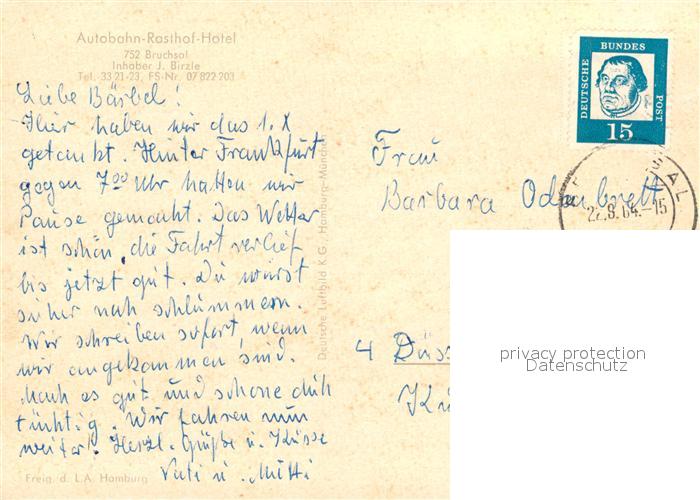 Autobahn-Rasthof-Hotel
752 Bruchsal
Inhaber J. Birzle
Tel. 33 21-23, FS-Nr. 07 822 203
Liebe Bärbel!
Hier haben wir das 1. X
getankt. Hinter Frankfurt
gegen 7⁰⁰ Uhr hatten wir
Pause gemacht. Das Wetter
ist schön, die Fahrt verlief
bis jetzt gut. Du wirst
sicher noch schlummern.
Wir schreiben sofort, wenn
wir angekommen sind.
Mach es gut und schone dich
tüchtig. Wir fahren nun
weiter. Herzl. Grüße u. Küsse
Vati u. Mutti
Freig. d. L.A. Hamburg
Deutsche Luftbild K.G., Hamburg-München
DEUTSCHE
BUNDES
POST
15
22.8.64.-15
Frau
Barbara Odenbrett
4 Düss
privacy protection
Datenschutz